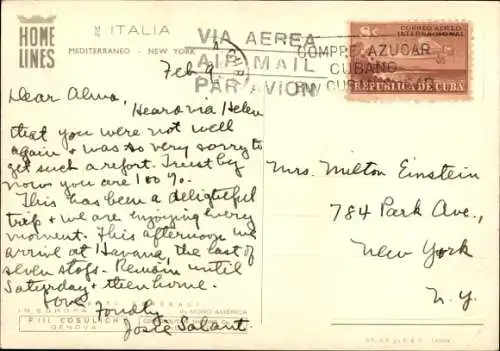 HOME
LINES
M/N ITALIA
MEDITERRANEO - NEW YORK
VIA AEREA
AIR MAIL
PAR AVION
COMPRE AZUCAR
CUBANO
BUY CUBAN SUGAR
8c CORREO AEREO
INTERNACIONAL
REPUBLICA DE CUBA
Feb 9
Dear Alma,
Heard via Helen
that you were not well
again & was so very sorry to
get such a report. Trust by
now you are 100%.
This has been a delightful
trip & we are enjoying every
moment. This afternoon we
arrive at Havana, the last of
seven stops. Remain until
Saturday & then home.
Love
Fondly
Josie Salant
AGENTI GENERALI
IN EUROPA
F.LLI COSULICH
GENOVA
IN NORD AMERICA
Mrs. Milton Einstein
784 Park Ave.,
New York
N.Y.